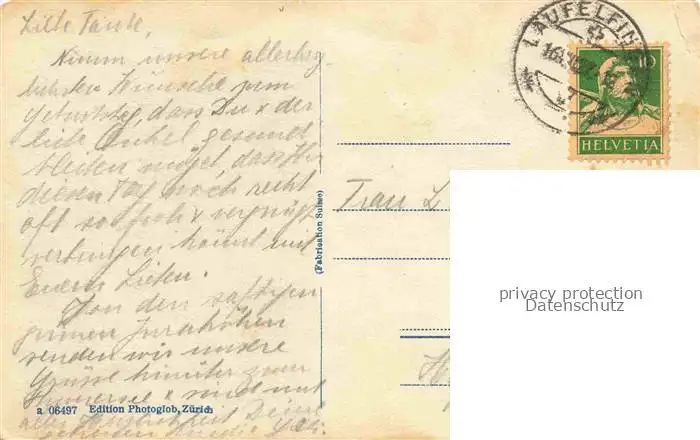 Liebe Tante,
Nimm unsere allerherz-
lichsten Wünsche zum
Geburtstag, dass Du & der
liebe Onkel gesund
bleiben möget, dass Ihr
diesen Tag noch recht
oft so froh & vergnügt
verbringen könnt mit
Euern Lieben.
Von den saftigen
grünen Jurahöhen
senden wir unsere
Grüsse hinüber zum
& sind mit
aller Herzlichkeit Deine
LÄUFELFINGEN
10
HELVETIA
Frau L
(Fabrication Suisse)
privacy protection
Datenschutz
a 06497 Edition Photoglob, Zürich